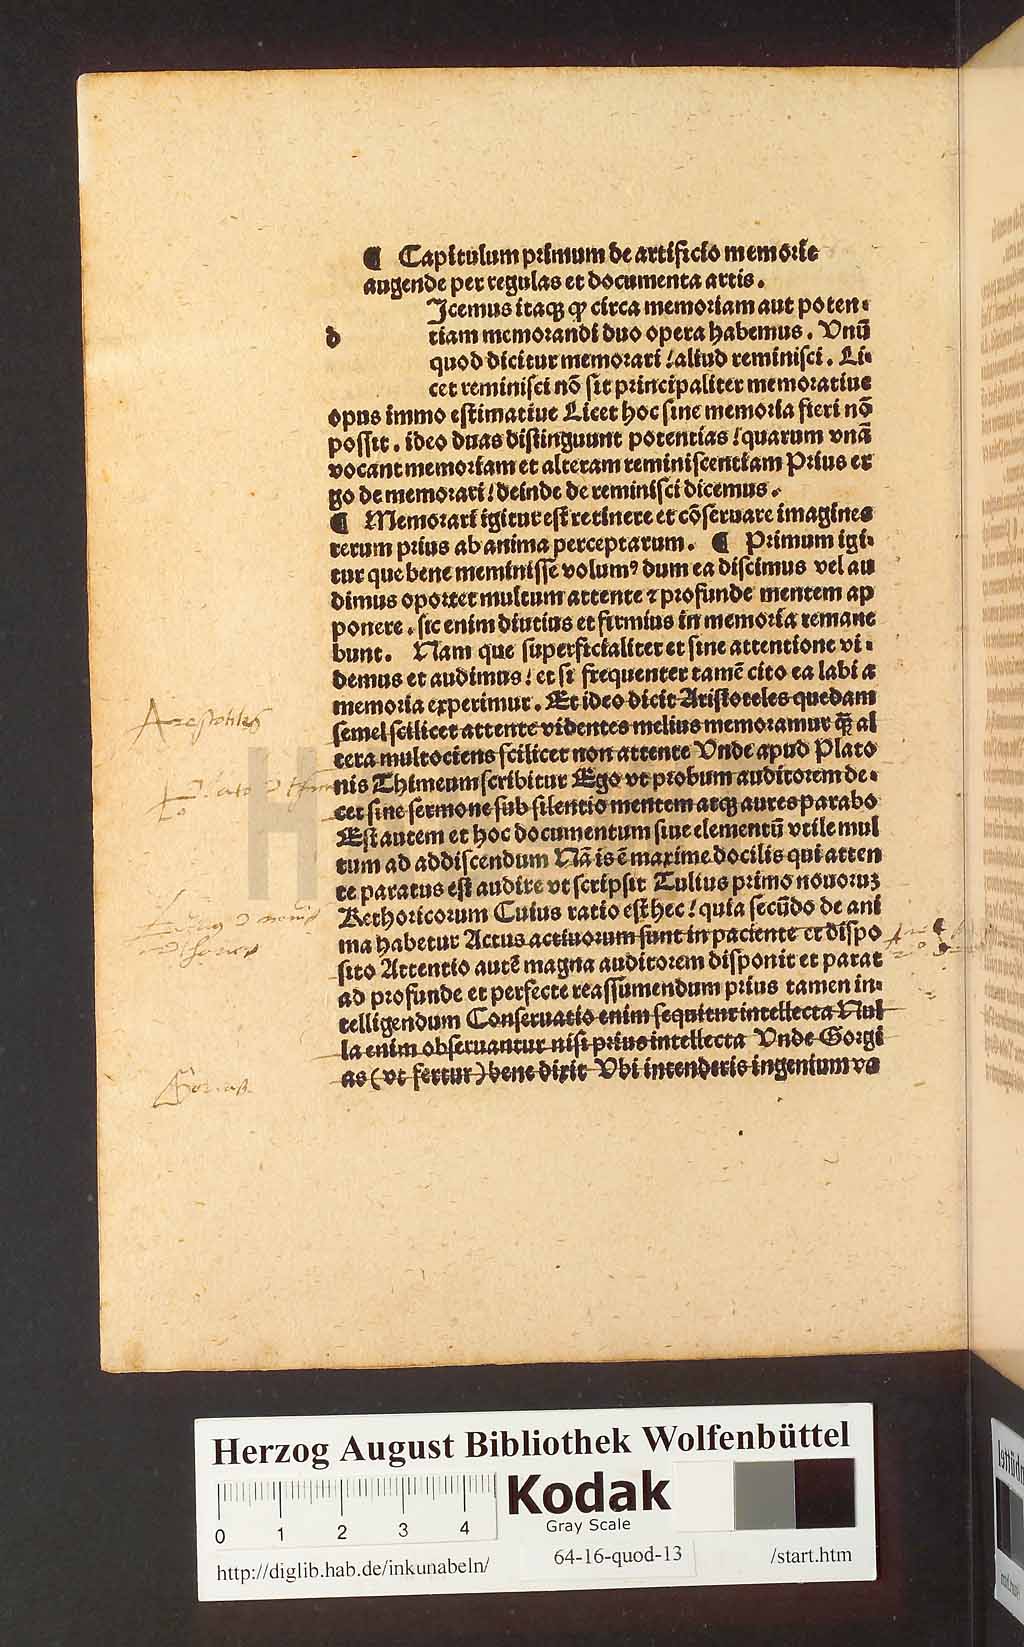 ¶ Capitulum primum de artificio memorie
augende per regulas et documenta artis.
Icemus itaqꝫ ꝙ circa memoriam aut poten⸗
d tiam memorandi duo opera habemus. Vnū
quod dicitur memorari / aliud reminisci. Li⸗
cet reminisci nō sit principaliter memoratiue
opus immo estimatiue Licet hoc sine memoria fieri nō
possit. ideo duas distinguunt potentias / quarum vnā
vocant memoriam et alteram reminiscentiam Prius er
go de memorari / deinde de reminisci dicemus.
¶ Memorari igitur est retinere et cōseruare imagines
rerum prius ab anima perceptarum. ¶ Primum igi⸗
tur que bene meminisse volumꝰ dum ea discimus vel au
dimus oportet multum attente ⁊ profunde mentem ap
ponere. sic enim diutius et firmius in memoria remane
bunt. Nam que superficialiter et sine attentione vi⸗
demus et audimus / et si frequenter tamē cito ea labi a
memoria experimur. Et ideo dicit Aristoteles quedam
semel scilicet attente videntes melius memoramur q̄ȝ al
tera multociens scilicet non attente Vnde apud Plato
nis Thimeum scribitur Ego vt probum auditorem de⸗
cet sine sermone sub silentio mentem atqꝫ aures parabo
Est autem et hoc documentum siue elementū vtile mul
tum ad addiscendum Nā is ē maxime docilis qui atten
te paratus est audire vt scripsit Tulius primo nouoruꝫ
Rethoricorum Cuius ratio est hec / quia secūdo de ani
ma habetur Actus actiuorum sunt in paciente et dispo
sito Attentio autē magna auditorem disponit et parat
ad profunde et perfecte reassumendum prius tamen in⸗
telligendum Conseruatio enim sequitur intellecta Nul
la enim obseruantur nisi prius intellecta Vnde Gorgi
as (vt fertur) bene dixit Vbi intenderis ingenium va
Aristotiles
Gorias
Herzog August Bibliothek Wolfenbüttel
0 1 2 3 4
Kodak
Gray Scale
http://diglib.hab.de/inkunabeln/ 64-16-quod-13 /start.htm